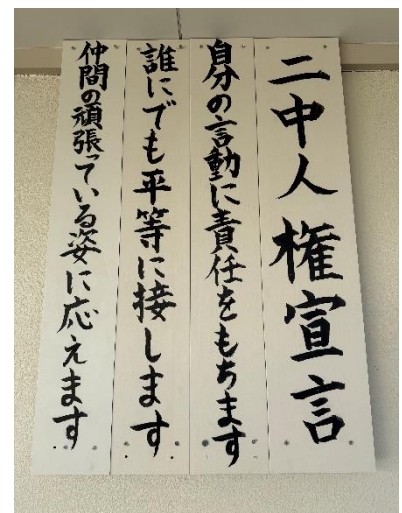 二中人権宣言
自分の言動に責任をもちます
誰にでも平等に接します
仲間の頑張っている姿に応えます